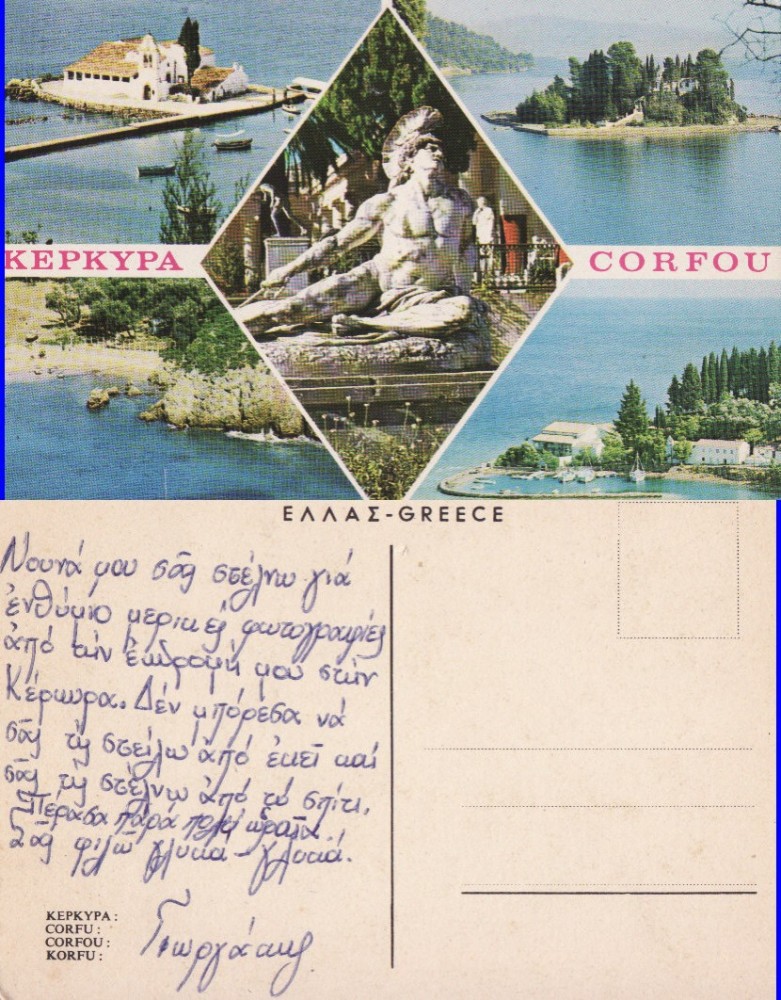 ΚΕΡΚΥΡΑ
CORFOU
ΕΛΛΑΣ-GREECE
Νουνά μου σᾶς στέλνω γιά
ἐνθύμιο μερικές φωτογραφίες
ἀπό τήν ἐκδρομή μου στήν
Κέρκυρα. Δέν μπόρεσα νά
σᾶς τίς στείλω ἀπό ἐκεῖ καί
σᾶς τίς στέλνω ἀπό τό σπίτι.
Πέρασα πάρα πολύ ὡραῖα.
Σᾶς φιλῶ γλυκά-γλυκά.
Γιωργάκης
ΚΕΡΚΥΡΑ:
CORFU:
CORFOU:
KORFU: